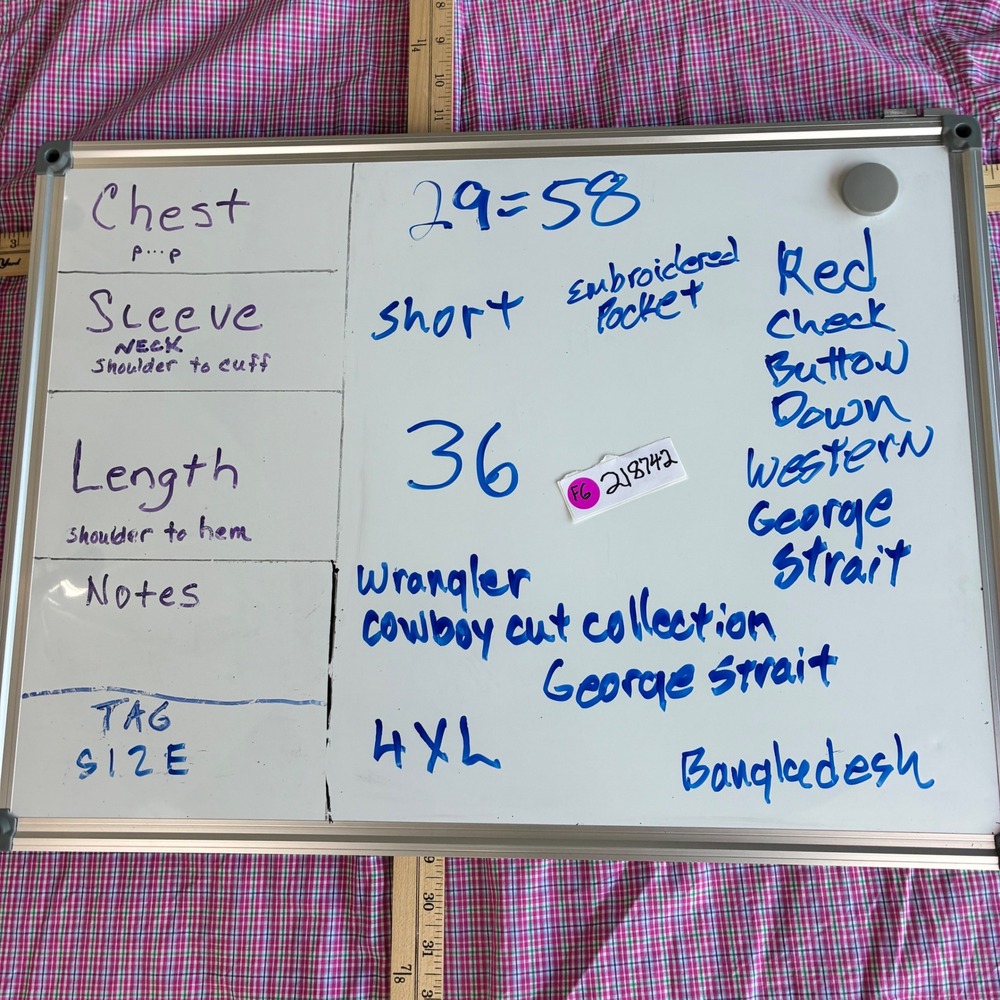 Chest
P...P
29=58
Sleeve
NECK
Shoulder to cuff
short
Embroidered
Pocket
Red
Check
Button
Down
Western
George
Strait
Length
shoulder to hem
36
F6 218742
Notes
Wrangler
cowboy cut collection
George Strait
TAG
SIZE
4XL
Bangladesh
8
9
10
11
1/4
3
9
30
31
7/8